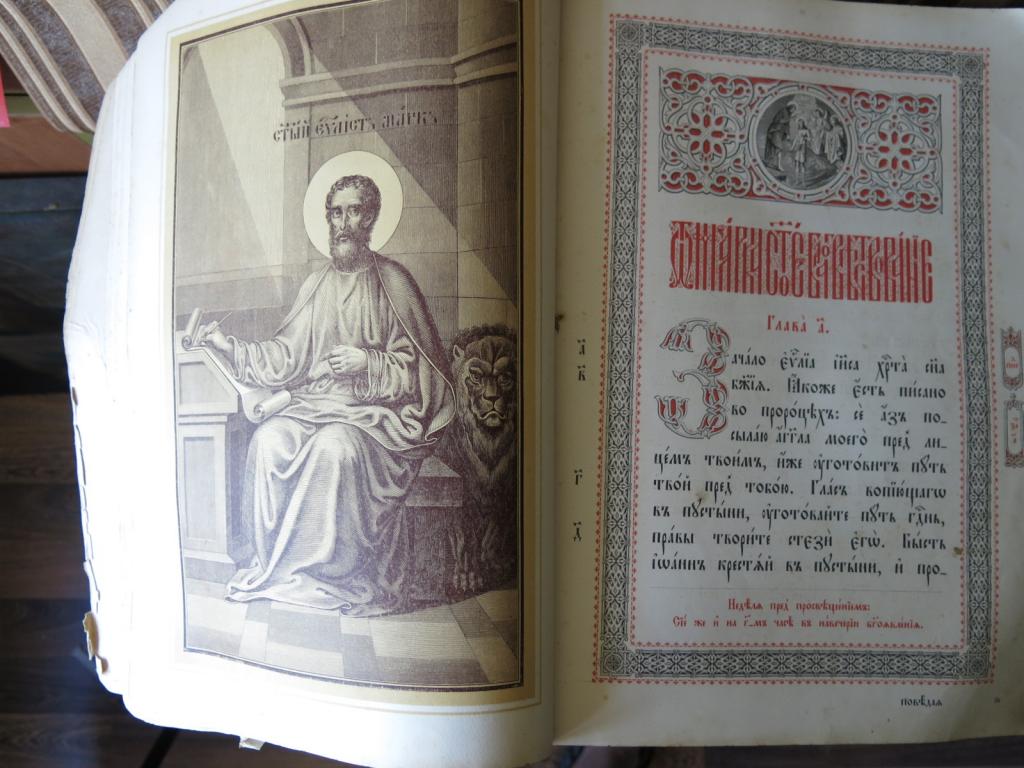 ст҃ый єѵ҃лістъ ма́ркъ
Ѿ ма́рка ст҃о́е бл҃говѣствова́нїе
Глава̀ а҃.
Зача́ло є҆ѵⷢ҇лїа і҆и҃са хрⷭ҇та̀ сн҃а
бж҃їѧ. Ꙗ҆́коже є҆́сть пи́сано
во проро́цѣхъ: сѐ а҆́зъ по-
сыла́ю а҆́гг҃ла моего̀ пред̾ ли-
це́мъ твои́мъ, и҆́же ᲂу҆гото́витъ пꙋ́ть
тво́й пред̾ тобо́ю. Гла́съ вопїю́щагѡ
въ пꙋсты́ни, ᲂу҆гото́вайте пꙋ́ть гдⷭ҇нь,
пра́вы твори́те стєзѝ є҆гѡ̀. Бы́сть
і҆ѡа́ннъ крестѧ́й въ пꙋсты́ни, и҆ про-
а҃
в҃
г҃
д҃
Недѣ́лѧ пред̾ просвѣще́нїемъ:
Сїѐ же и҆ на г҃-мъ часѣ̀ въ наве́черїи бг҃оѧвле́нїѧ.
повѣ́даѧ